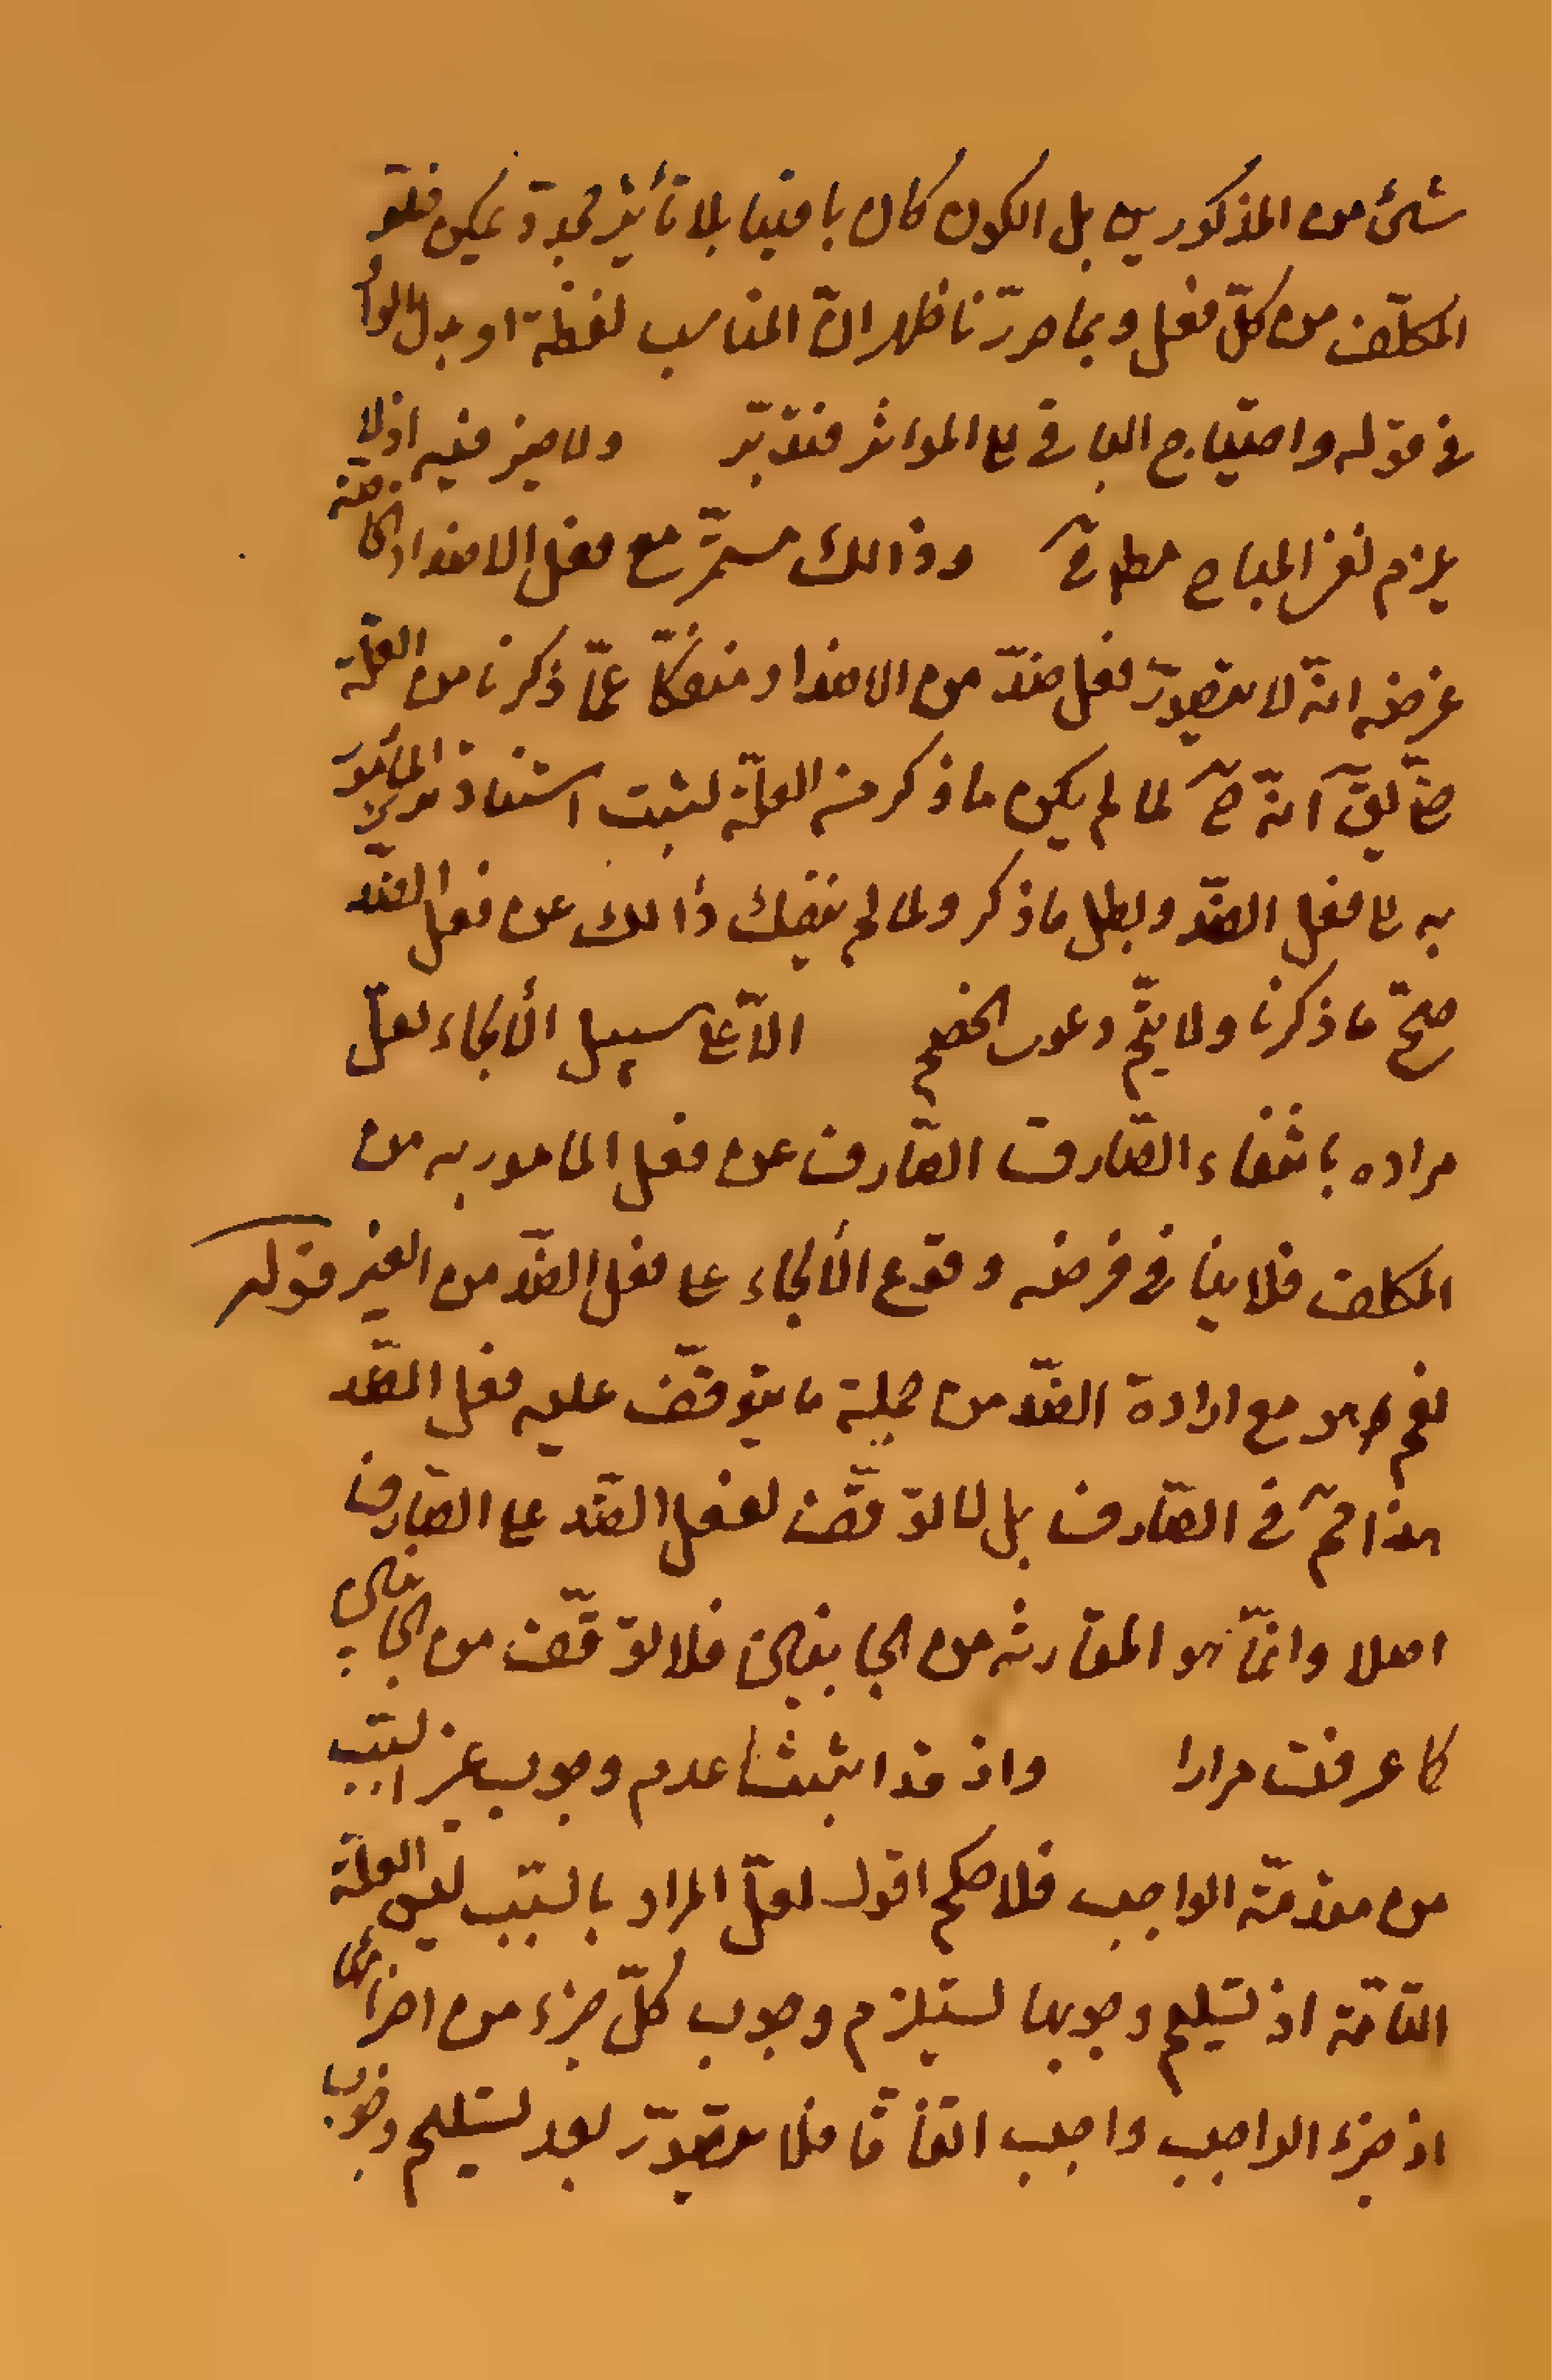 شئ من المذكورين بل الكون كان باقيا بلا تأثير مجدد يمكن خلو
المكلّف من كلّ فعل وبما حررّنا ظهر انّ المناسب لفظة او بدل الواو
في قوله واحتياج الباقي الى المؤثر فتدبّر ولا ضير فيه اذ لا
يلزم نفي المباح مطلقا وذالك مستمرّ مع فعل الاضداد الخاصّة
غرضه انّه لا يتصوّر فعل ضدّ من الاضداد منفكّا عمّا ذكرنا من العلّة
حتّى يقّ انّه ح لما لم يكن ما ذكر من العلّة لثبت استناد ترك المأمور
به الى فعل الضدّ وبطل ما ذكر ولما لم ينفك ذالك عن فعل الضدّ
صحّ ما ذكرنا ولا يتمّ دعوى الخصم الاّ على سبيل الألجاء لعلّ
مراده بانتفاء الصّارف الصّارف عن فعل المأمور به من
المكلف فلا ينافي فرضه وقوع الألجاء على فعل الضدّ من الغير قوله
نعم هو مع ارادة الضدّ من جملة ما يتوقّف عليه فعل الضدّ
هذا مم في الصّارف بل لا توقّف لفعل الضدّ على الصّارف
اصلا وانّما هو المقارنة من الجانبين فلا توقّف من الجانبين
كما عرفت مرارا واذ قد اثبتنا عدم وجوب غير السّبب
من مقدّمة الواجب فلا حكم اقول لعلّ المراد بالسّبب ليس العلّة
التّامّة اذ تسليم وجوبها يستلزم وجوب كلّ جزء من اجزائها
اذ جزء الواجب واجب اتفاقا فلا يتصوّر بعد تسليم وجوب